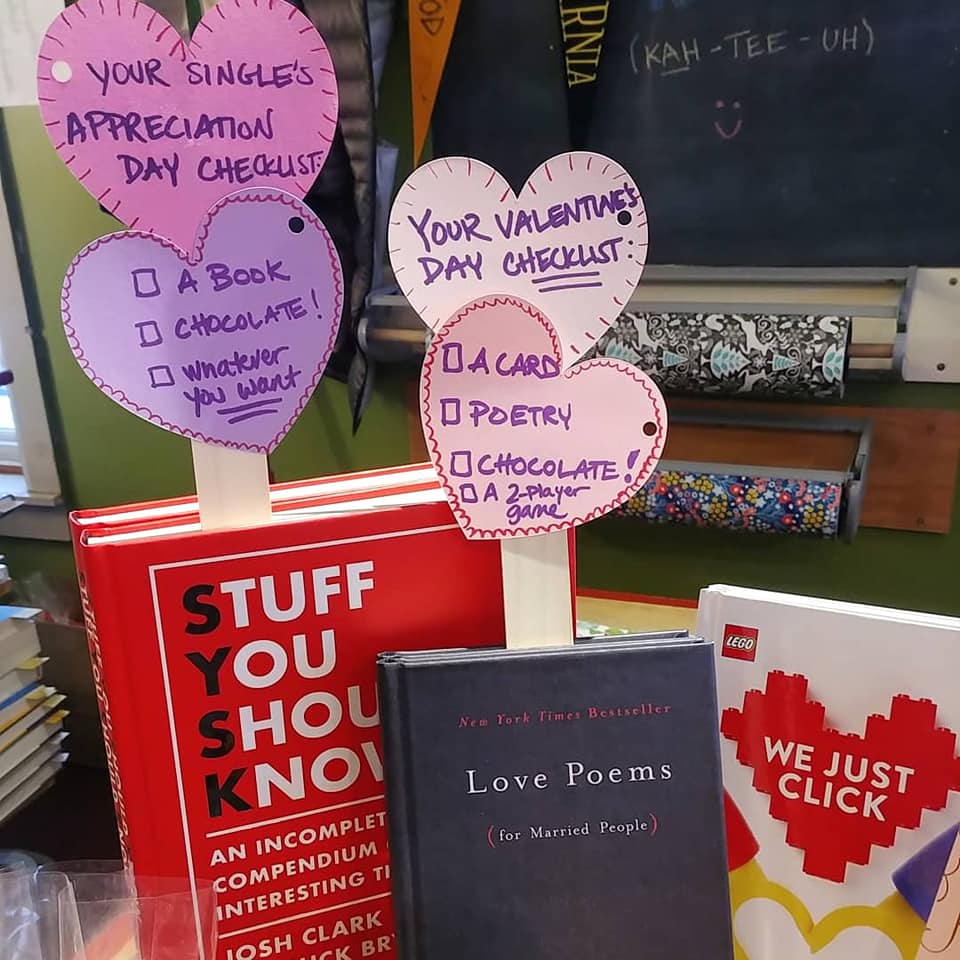 YOUR SINGLE'S
APPRECIATION
DAY CHECKLIST:
A BOOK
CHOCOLATE!
Whatever
you want
YOUR VALENTINE'S
DAY CHECKLIST:
A CARD
POETRY
CHOCOLATE!
A 2-Player
game
(KAH-TEE-UH)
STUFF
YOU
SHOU
KNOW
AN INCOMPLET
COMPENDIUM
INTERESTING
JOSH CLARK
New York Times Bestseller
Love Poems
(for Married People)
LEGO
WE JUST
CLICK